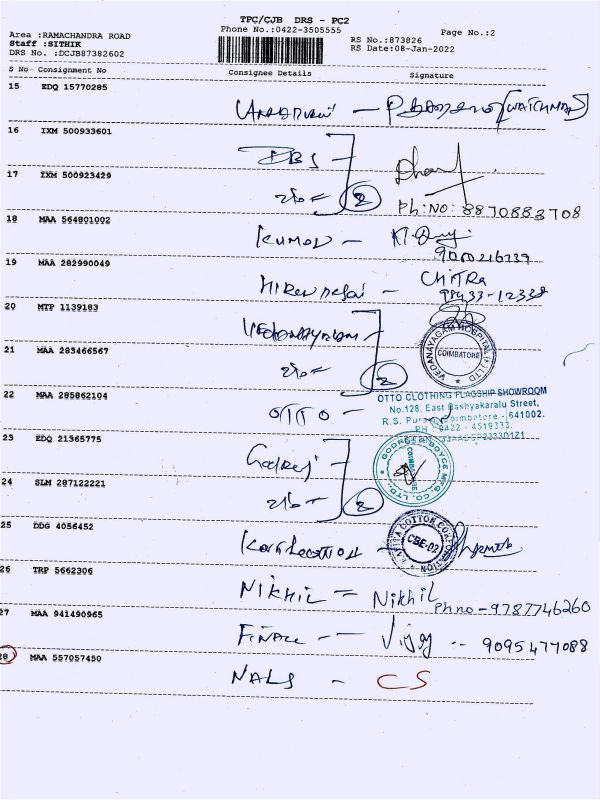 TPC/CJB DRS - PC2
Phone No.:0422-3505555
Page No.:2
Area :RAMACHANDRA ROAD
Staff :SITHIK
DRS No. :DCJB87382602
RS No.:873826
RS Date:08-Jan-2022
S No Consignment No Consignee Details Signature
15 EDQ 15770285
(WATCHMAN)
16 IXM 500933601
DBS
17 IXM 500923429
2
Ph: NO: 8870883708
18 MAA 564801002
Kumar -
19 MAA 282990049
Hiren Desai - CHITRA
20 MTP 1139183
VEDANAYAGAM HOSPITAL P LTD
COIMBATORE
21 MAA 283466567
2
22 MAA 285862104
OTTO -
OTTO CLOTHING FLAGSHIP SHOWROOM
No.128, East Bashyakaralu Street,
R.S. Puram, Coimbatore - 641002.
PH : 0422 - 4519333.
23 EDQ 21365775
Godrej
GODREJ & BOYCE MFG. CO. LTD.
COIMBATORE
24 SLM 287122221
2
25 DDG 4056452
COTTON CORPORATION
CBE-02
26 TRP 5662306
NIKHIL = Nikhil
Ph no - 9787746260
27 MAA 941490965
Vijay -- 9095477088
28 MAA 557057450
NALS - CS